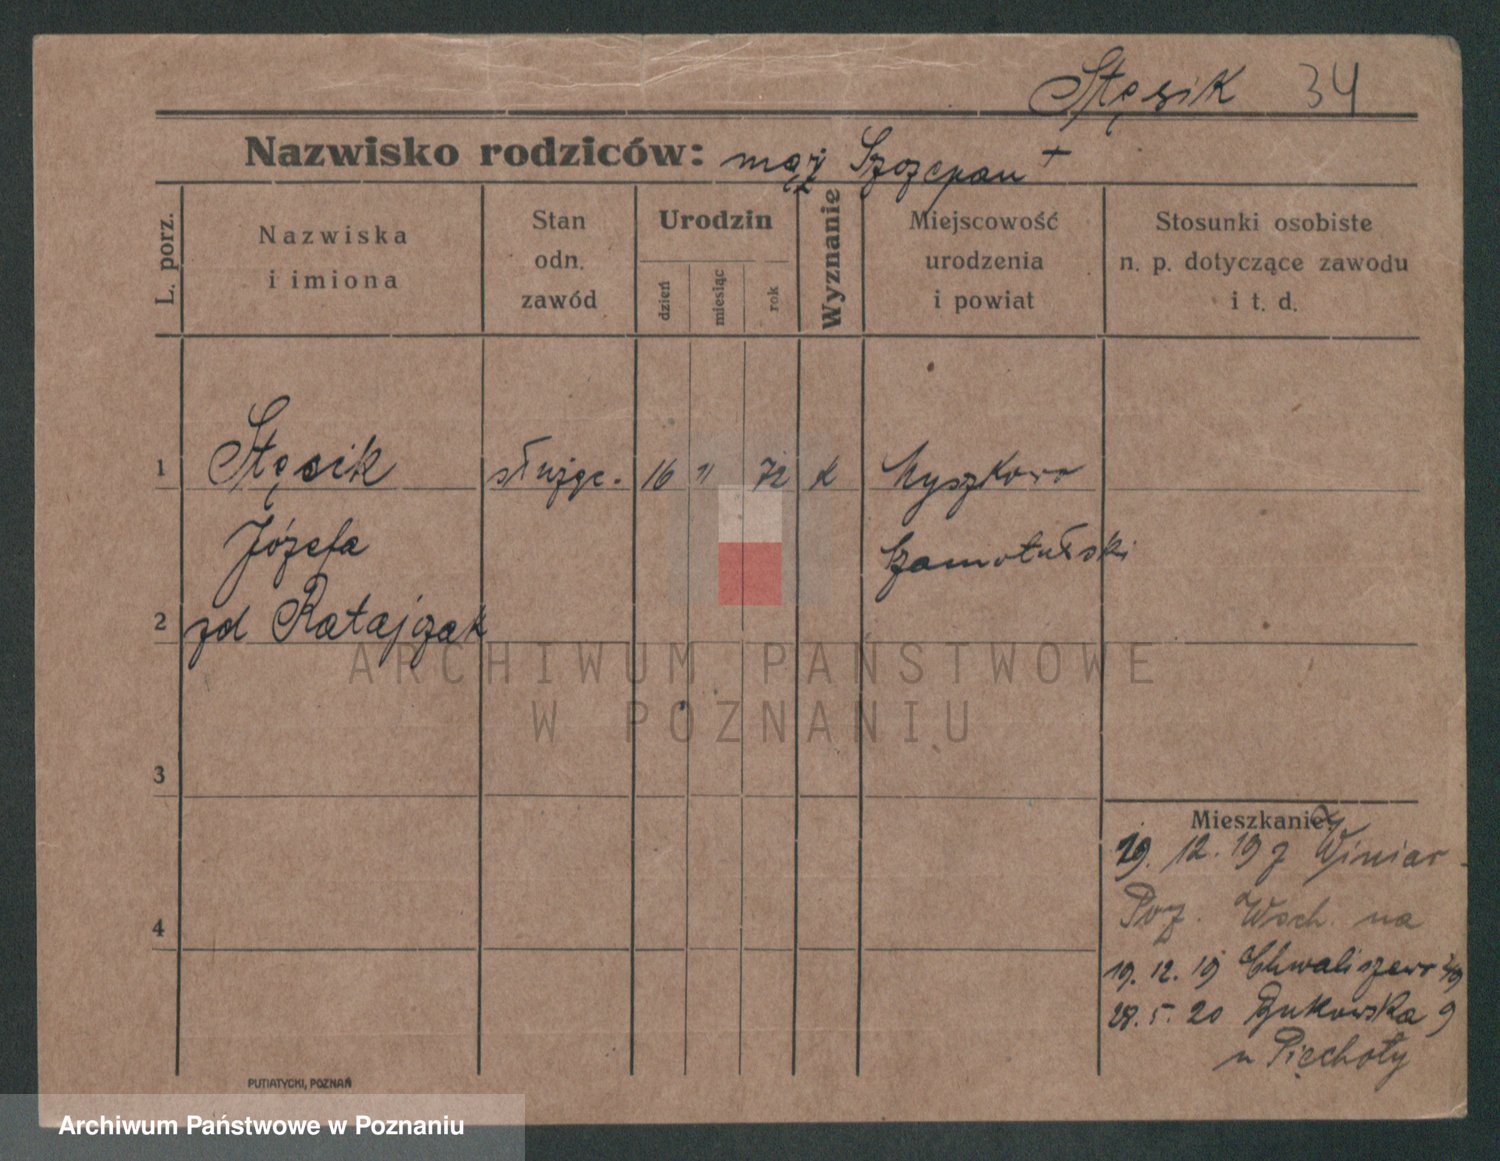 Stęsik 34
Nazwisko rodziców: mąż Szczepan +
L. porz.
Nazwiska
i imiona
Stan
odn.
zawód
Urodzin
dzień
miesiąc
rok
Wyznanie
Miejscowość
urodzenia
i powiat
Stosunki osobiste
n. p. dotyczące zawodu
i t. d.
1 Stęsik służąc. 16 11 72 k Myszkowo
Józefa Szamotulski
2 zd Ratajczak
ARCHIWUM PAŃSTWOWE
W POZNANIU
3
Mieszkanie:
19. 12. 19 z Winiar
Poz. Wsch. na
4
19. 12. 19 Chwaliszewo
28. 5. 20 Bukowska 9
u Piechoty
PUTIATYCKI, POZNAŃ
Archiwum Państwowe w Poznaniu